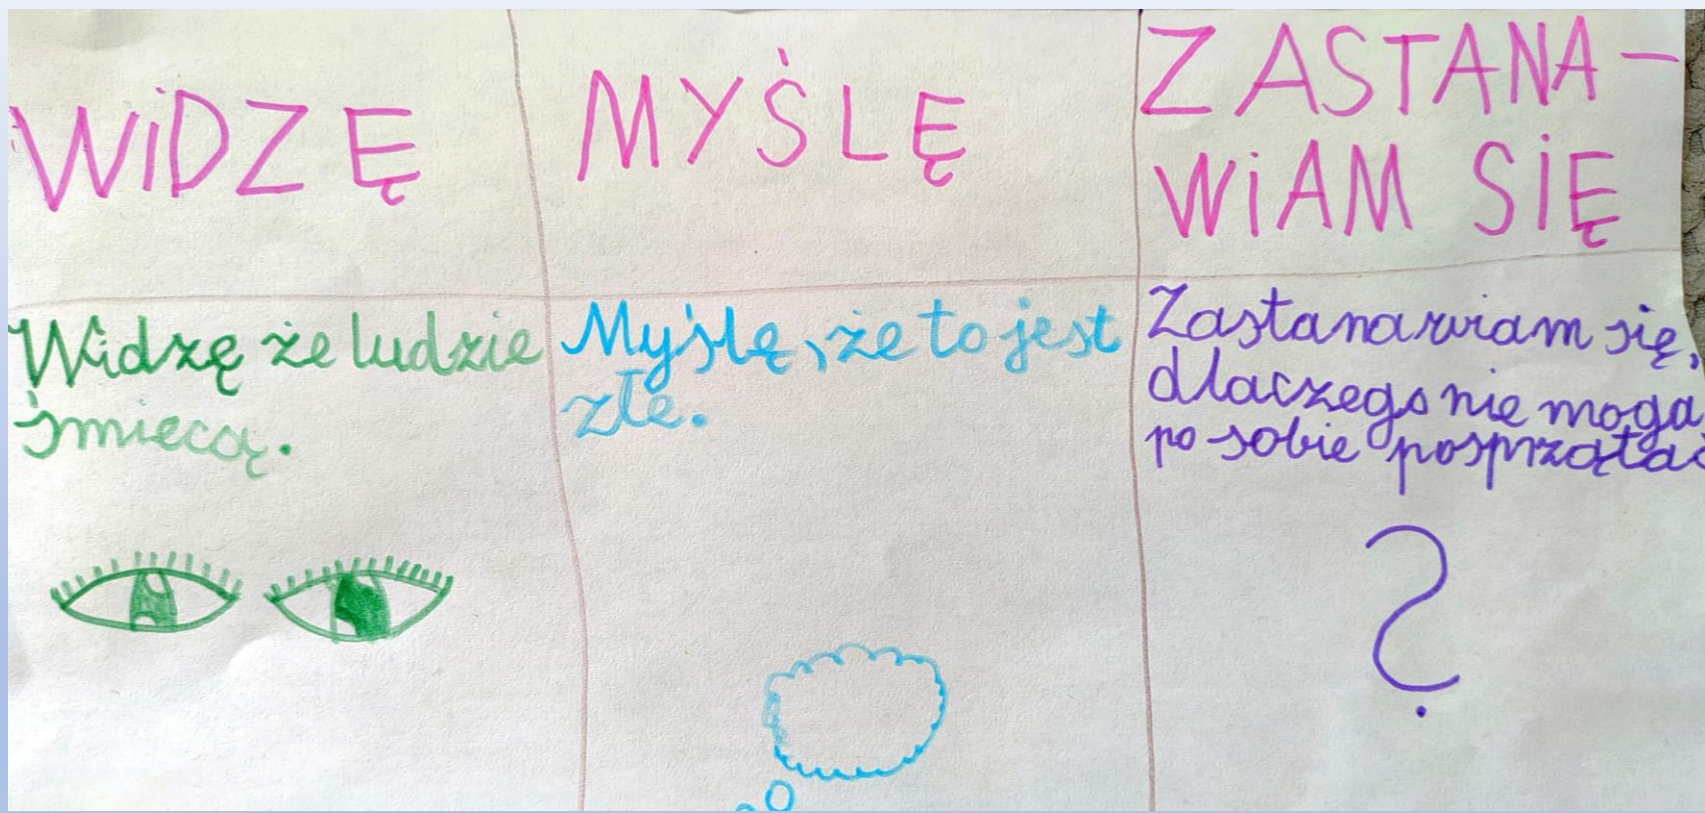 WiDZĘ
MYŚLĘ
ZASTANA-
WiAM SIĘ
Widzę że ludzie
śmiecą.
Myślę, że to jest
złe.
Zastanawiam się,
dlaczego nie mogą
po sobie posprzątać
?